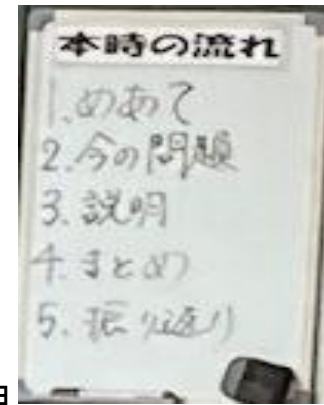 本時の流れ
1.めあて
2.今の問題
3.説明
4.まとめ
5.振り返り